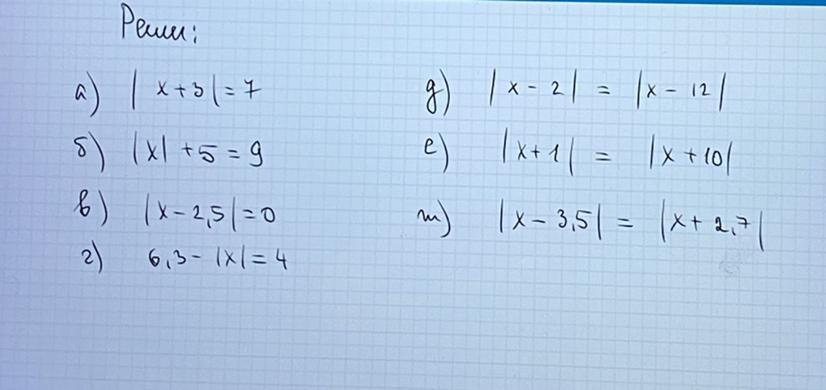 Реши:
а) |x+3|=7
б) |x|+5=9
в) |x-2,5|=0
г) 6,3-|x|=4
д) |x-2| = |x-12|
е) |x+1| = |x+10|
т) |x-3,5| = |x+2,7|